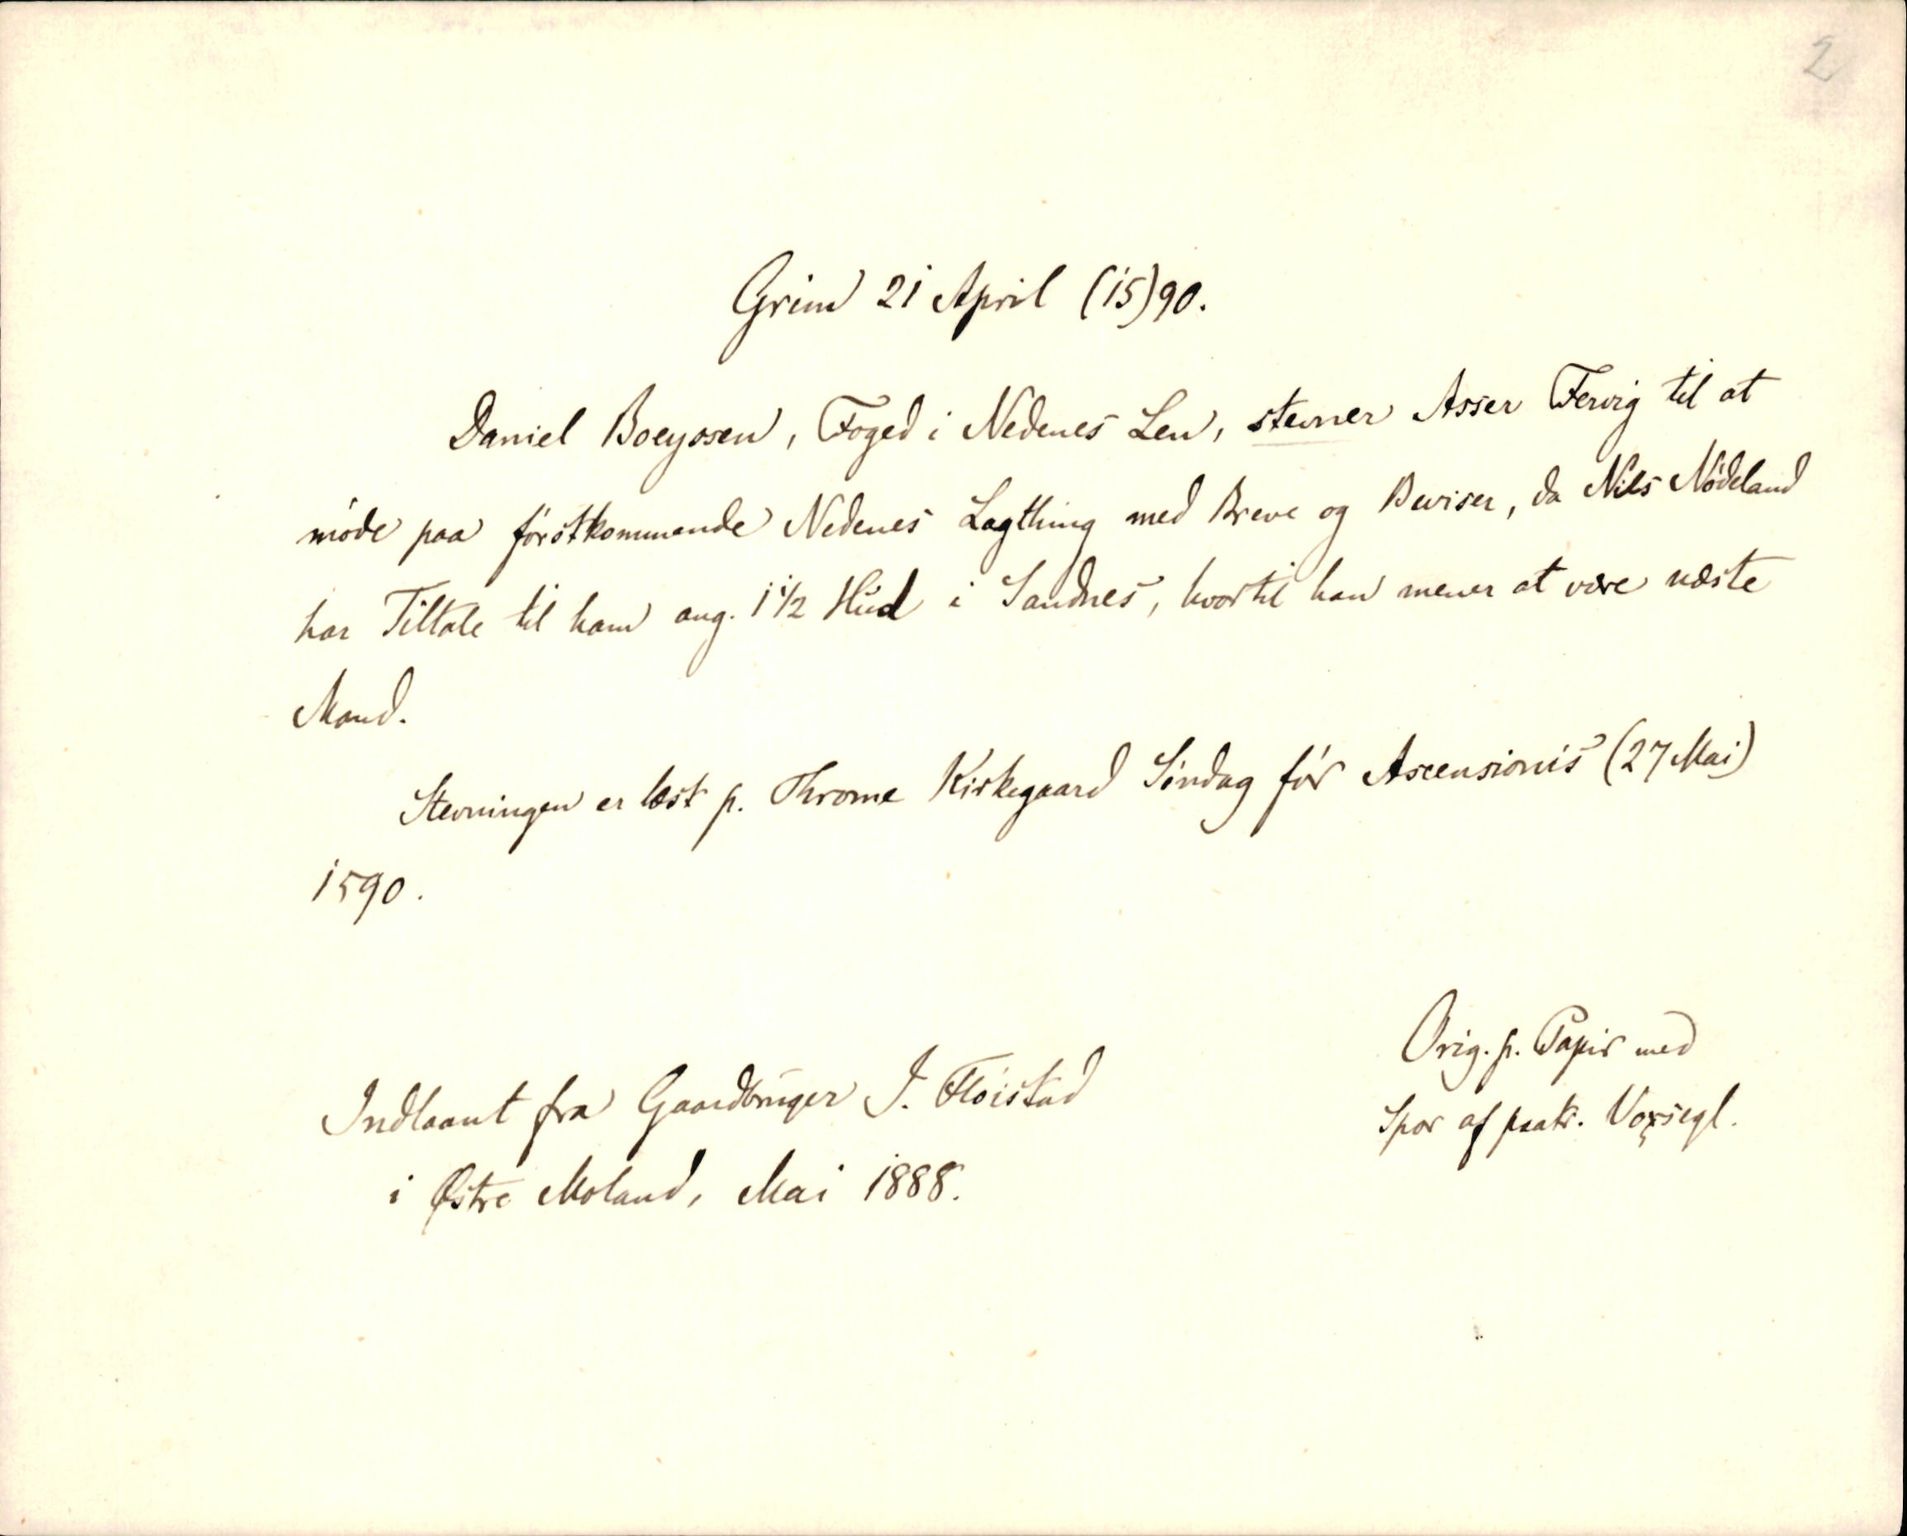 2
Grim 21 April (15)90.
Daniel Boeyssen, Foged i Nedenes Len, stevner Asser Fervig til at
møde paa førstkommende Nedenes Lagthing med Breve og Beviser, da Nils Nødeland
har Tiltale til ham ang. 1 1/2 Hud i Sandnes, hvortil han mener at være næste
Mand.
Stevningen er læst p. Throme Kirkegaard Søndag før Ascensionis (27 Mai)
1590.
Orig. p. Papir med
Spor af paatr. Voxsegl.
Indlaant fra Gaardbruger J. Fløistad
i Østre Moland, Mai 1888.